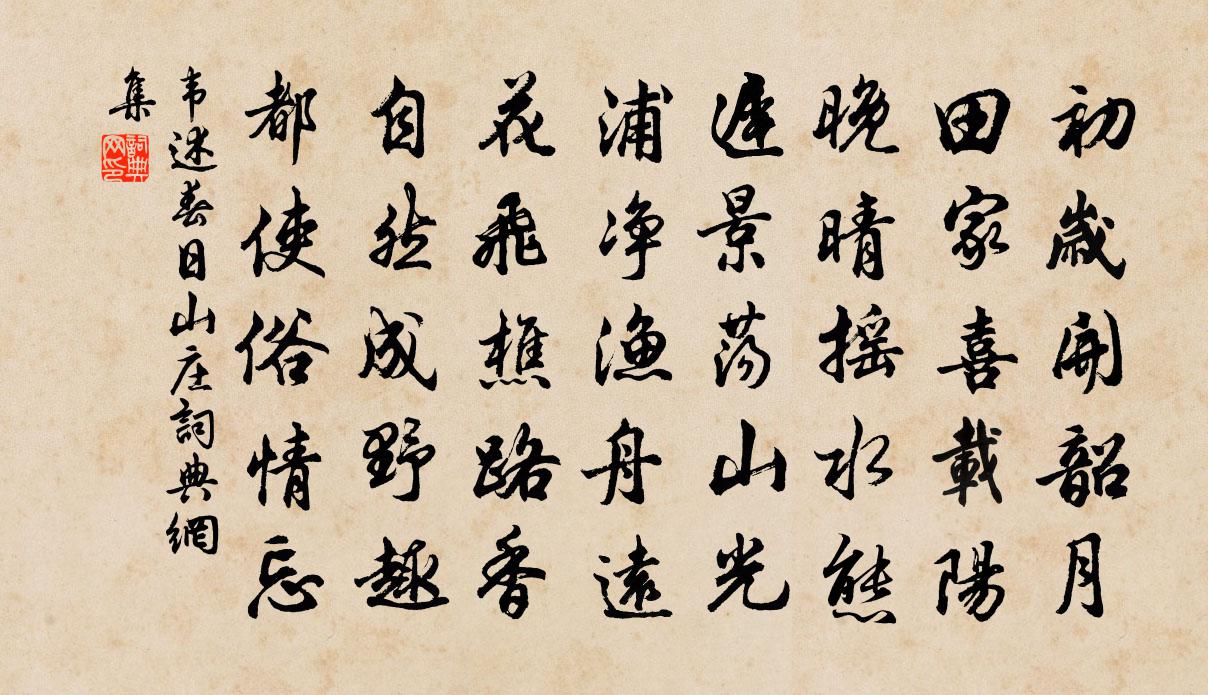 初歲開韶月
田家喜載陽
晚晴搖水態
遲景蕩山光
浦净漁舟遠
花飛樵路香
自然成野趣
都使俗情忘
韦述春日山庄詞典網
集
詞典
网印